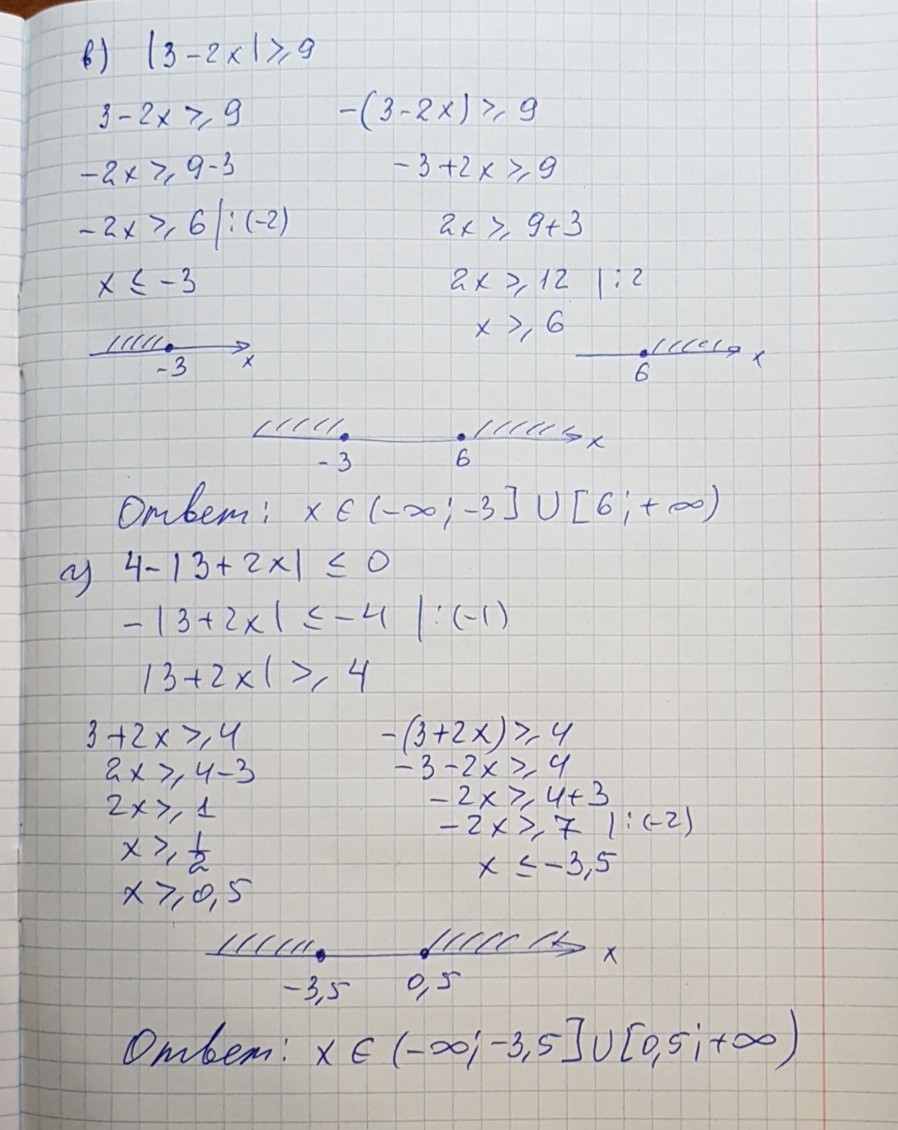 в) |3-2x|⩾9
3-2x⩾9    -(3-2x)⩾9
-2x⩾9-3    -3+2x⩾9
-2x⩾6 |:(-2)    2x⩾9+3
x≤-3    2x⩾12 |:2
x⩾6
-3    x    6    x
-3    6    x
Ответ: x∈(-∞;-3]∪[6;+∞)
г) 4-|3+2x|≤0
-|3+2x|≤-4 |:(-1)
|3+2x|⩾4
3+2x⩾4    -(3+2x)⩾4
2x⩾4-3    -3-2x⩾4
2x⩾1    -2x⩾4+3
x⩾1/2    -2x⩾7 |:(-2)
x⩾0,5    x≤-3,5
-3,5    0,5    x
Ответ: x∈(-∞;-3,5]∪[0,5;+∞)